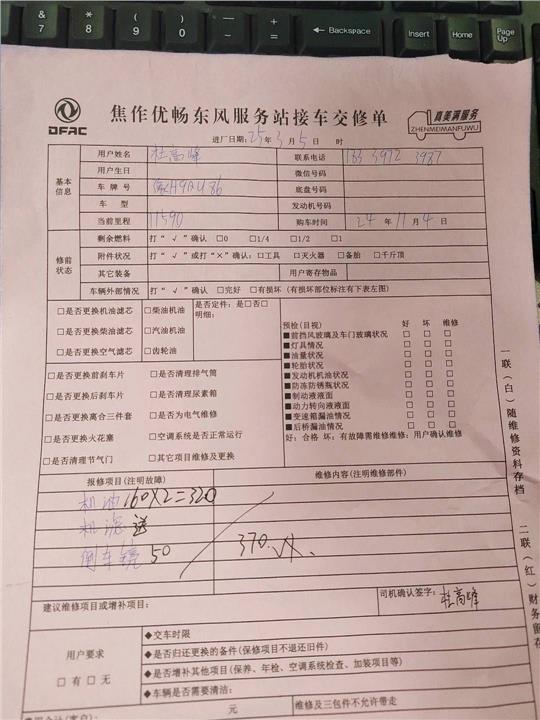 & 7
* 8
( 9
) 0
← Backspace
Insert
Home
Page Up
DFAC
焦作优畅东风服务站接车交修单
真美满服务
ZHENMEIMANFUWU
进厂日期:25年3月5日 时
基本信息
用户姓名 杜高峰 联系电话 183 3972 3987
用户生日 微信号码
车牌号 底盘号码
车型 发动机号码
当前里程 11590 购车时间 24年11月4日
修前状态
剩余燃料 打“√”确认 □0 □1/4 □1/2 □1
附件状况 打“√”或打“×”确认:□工具 □灭火器 □备胎 □千斤顶
其它装备 用户寄存物品
车辆外部情况 打“√”确认 □完好 □有损坏(有损坏部位标注有下表左图)
□是否更换机油滤芯 □柴油机油
□是否更换柴油滤芯 □汽油机油
□是否更换空气滤芯 □齿轮油
是否定件:是□否□
明细:
□是否更换前刹车片 □是否清理排气筒
□是否更换后刹车片 □是否清理尿素箱
□是否更换离合三件套 □是否为电气维修
□是否更换火花塞 □空调系统是否正常运行
□是否清理节气门 □其它项目维修及更换
预检(目视) 好 坏 维修
■前挡风玻璃及车门玻璃状况 □ □ □
■灯具情况 □ □ □
■油量状况 □ □ □
■轮胎状况 □ □ □
■发动机机油状况 □ □ □
■防冻防锈瓶状况 □ □ □
■制动液液面 □ □ □
■动力转向液液面 □ □ □
■变速箱漏油情况 □ □ □
■后桥漏油情况 □ □ □
好:合格 坏:有故障需维修维修:用户确认维修
报修项目(注明故障) 维修内容(注明维修部件)
机油 160X2=320
机滤 送
倒车镜 50
370.
建议维修项目或增补项目:
司机确认签字:杜高峰
用户要求
□有□无
◆交车时限
◆是否归还更换的备件(保修项目不退还旧件)
◆是否增补其他项目(保养、年检、空调系统检查、加装项目等)
◆车辆是否需要清洁:
元 维修及三包件不允许带走
一联(白)随维修资料存档
二联(红)财务留存